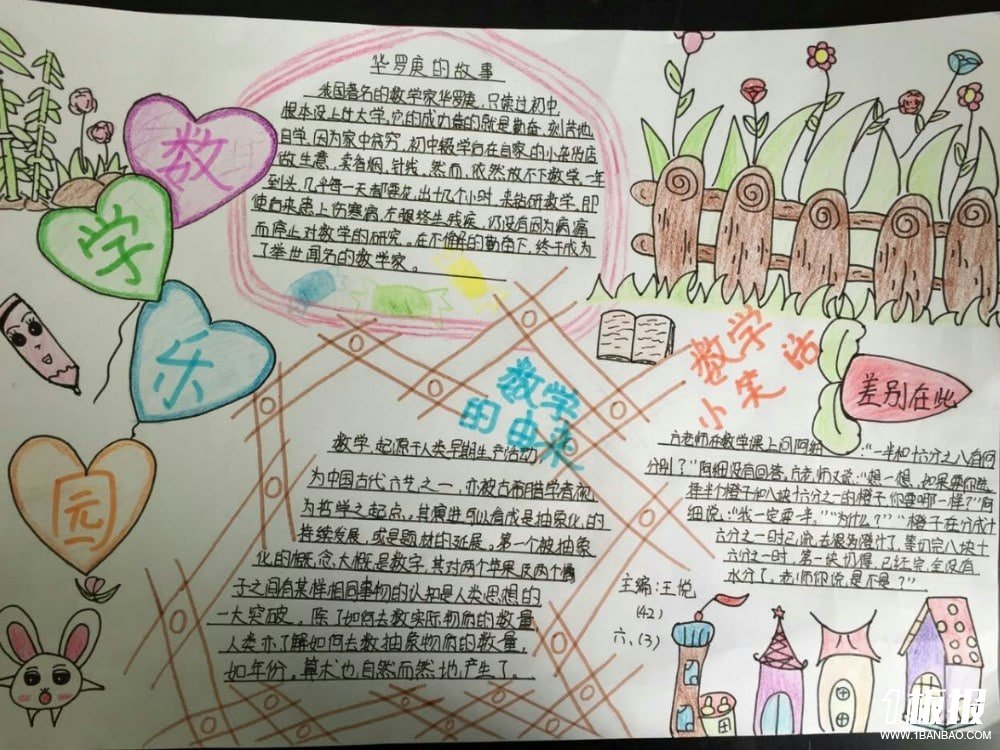 数
学
乐
园
华罗庚的故事
我国著名的数学家华罗庚，只读过初中，
根本没上过大学，它的成功靠的就是勤奋，刻苦地
自学，因为家中贫穷，初中辍学后在自家的小杂货店
做生意，卖香烟、针线，然而，依然放不下数学，一年
到头，几乎每一天都要花出十几个小时，来钻研数学，即
使后来患上伤寒病，左腿终生残疾，仍没有因为病痛
而停止对数学的研究，在不懈的勤奋下，终于成为
了举世闻名的数学家。
数学
的由来
数学，起源于人类早期生产活动
为中国古代六艺之一，亦被古希腊学者视
为哲学之起点。其演进可以看成是抽象化的
持续发展，或是题材的延展。第一个被抽象
化的概念，大概是数字，其对两个苹果及两个橘
子之间有某样相同事物的认知是人类思想的
一大突破。除了如何去数实际物质的数量，
人类亦了解如何去数抽象物质的数量，
如年份。算术也自然而然地产生了。
数学
小笑话
差别在此
方老师在数学课上问阿细：“一半和十六分之八有何
分别？”阿细没有回答，方老师又说：“想一想，如果要你选
择半个橙子和八块十六分之一的橙子，你要哪一样？”阿
细说：“我一定要一半。”“为什么？”“橙子在分成十
六分之一时已流去很多橙汁了，等
六分之一时，
水分了，老师你说是不是？”
主编：王悦
(42)
六、(3)
1板报
WWW.1BANBAO.COM